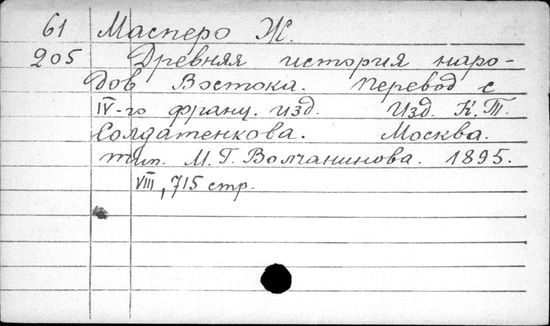 61 Масперо Ж.
205 Древняя история наро-
дов Востока. Перевод с
IV-го франц. изд. Изд. К. Т.
Солдатенкова. Москва.
тип. М. Г. Волчанинова. 1895.
VIII, 715 стр.